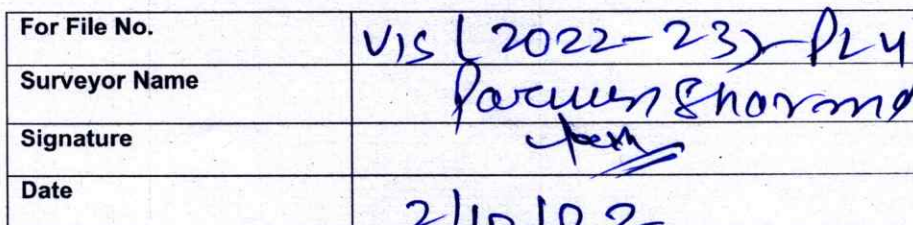 For File No. VIS (2022-23)-PL4
Surveyor Name Parveen Sharma
Signature
Date